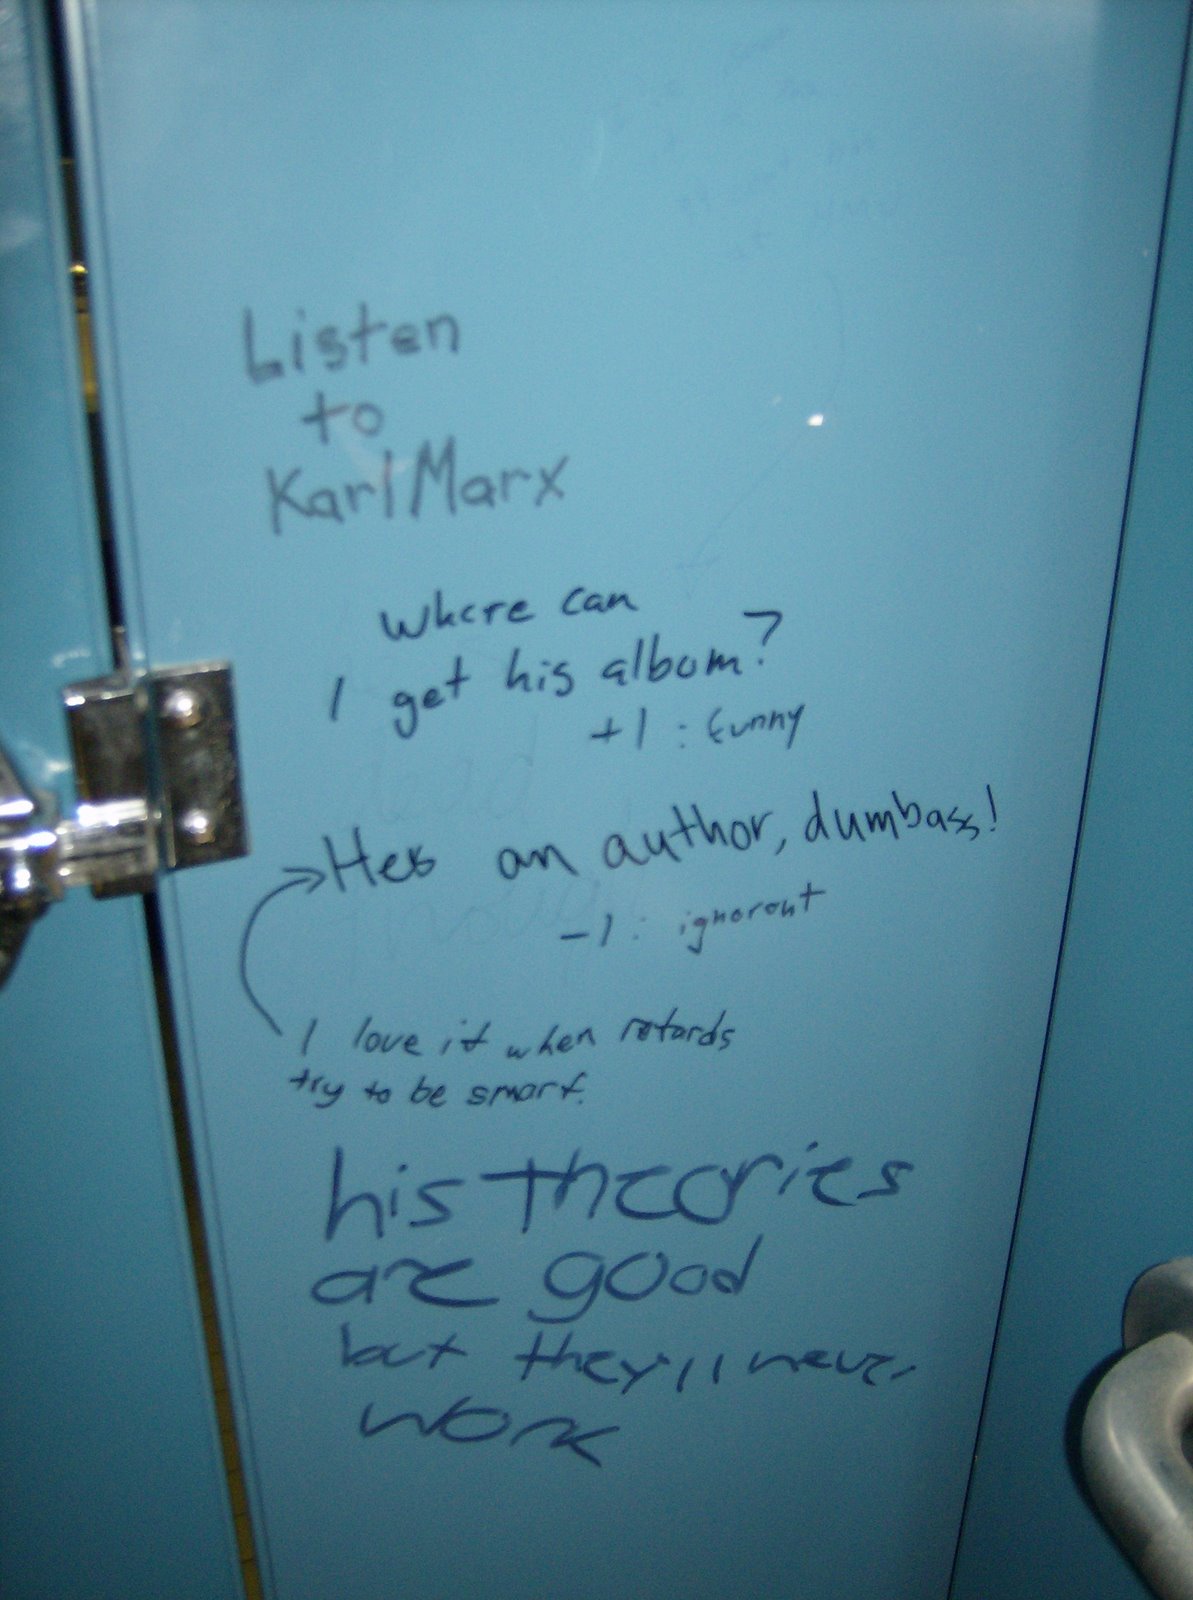 Listen
to
Karl Marx
Where can
I get his albom?
+1: funny
Hes an author, dumbass!
-1: ignorant
I love it when retards
try to be smart.
his theories
are good
but they'll never
work